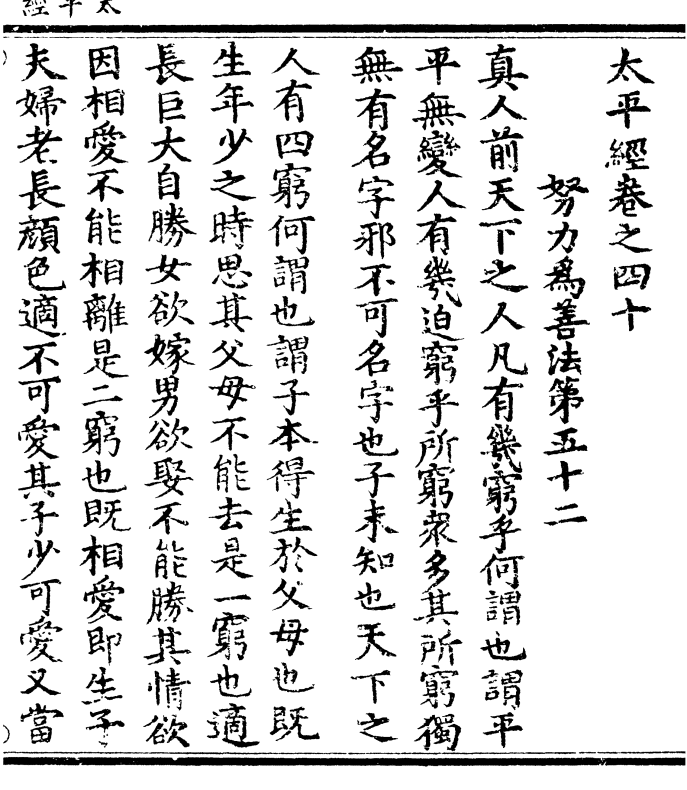 太平經
太平經卷之四十
努力為善法第五十二
真人前天下之人凡有幾窮乎何謂也謂平
平無變人有幾迫窮乎所窮衆多其所窮獨
無有名字邪不可名字也子未知也天下之
人有四窮何謂也謂子本得生於父母也既
生年少之時思其父母不能去是一窮也適
長巨大自勝女欲嫁男欲娶不能勝其情欲
因相愛不能相離是二窮也既相愛即生子
夫婦老長顏色適不可愛其子少可愛又當